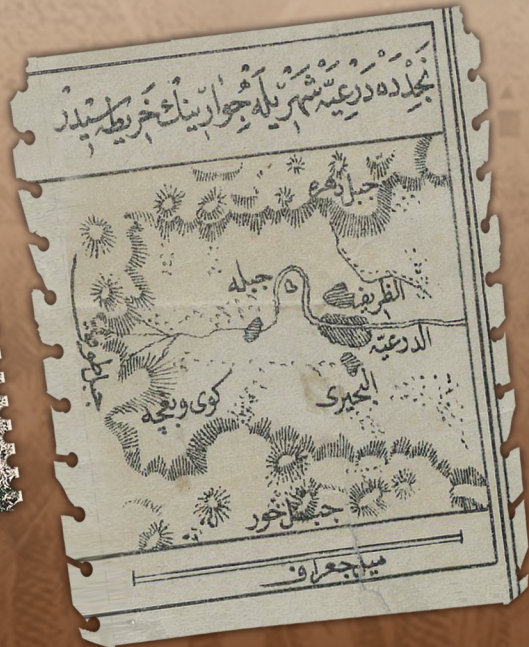 نَجْدِدَه دَرْعِيَّه شَهْرِيلَه جِوَارِينِڭ خَرِيطَه سِيدِر
جبل دهره
جبله
الظريفه
الدرعيّه
جبل طويق
البحيرى
كوى وبغچه
جبل خور
ميل جغرافى